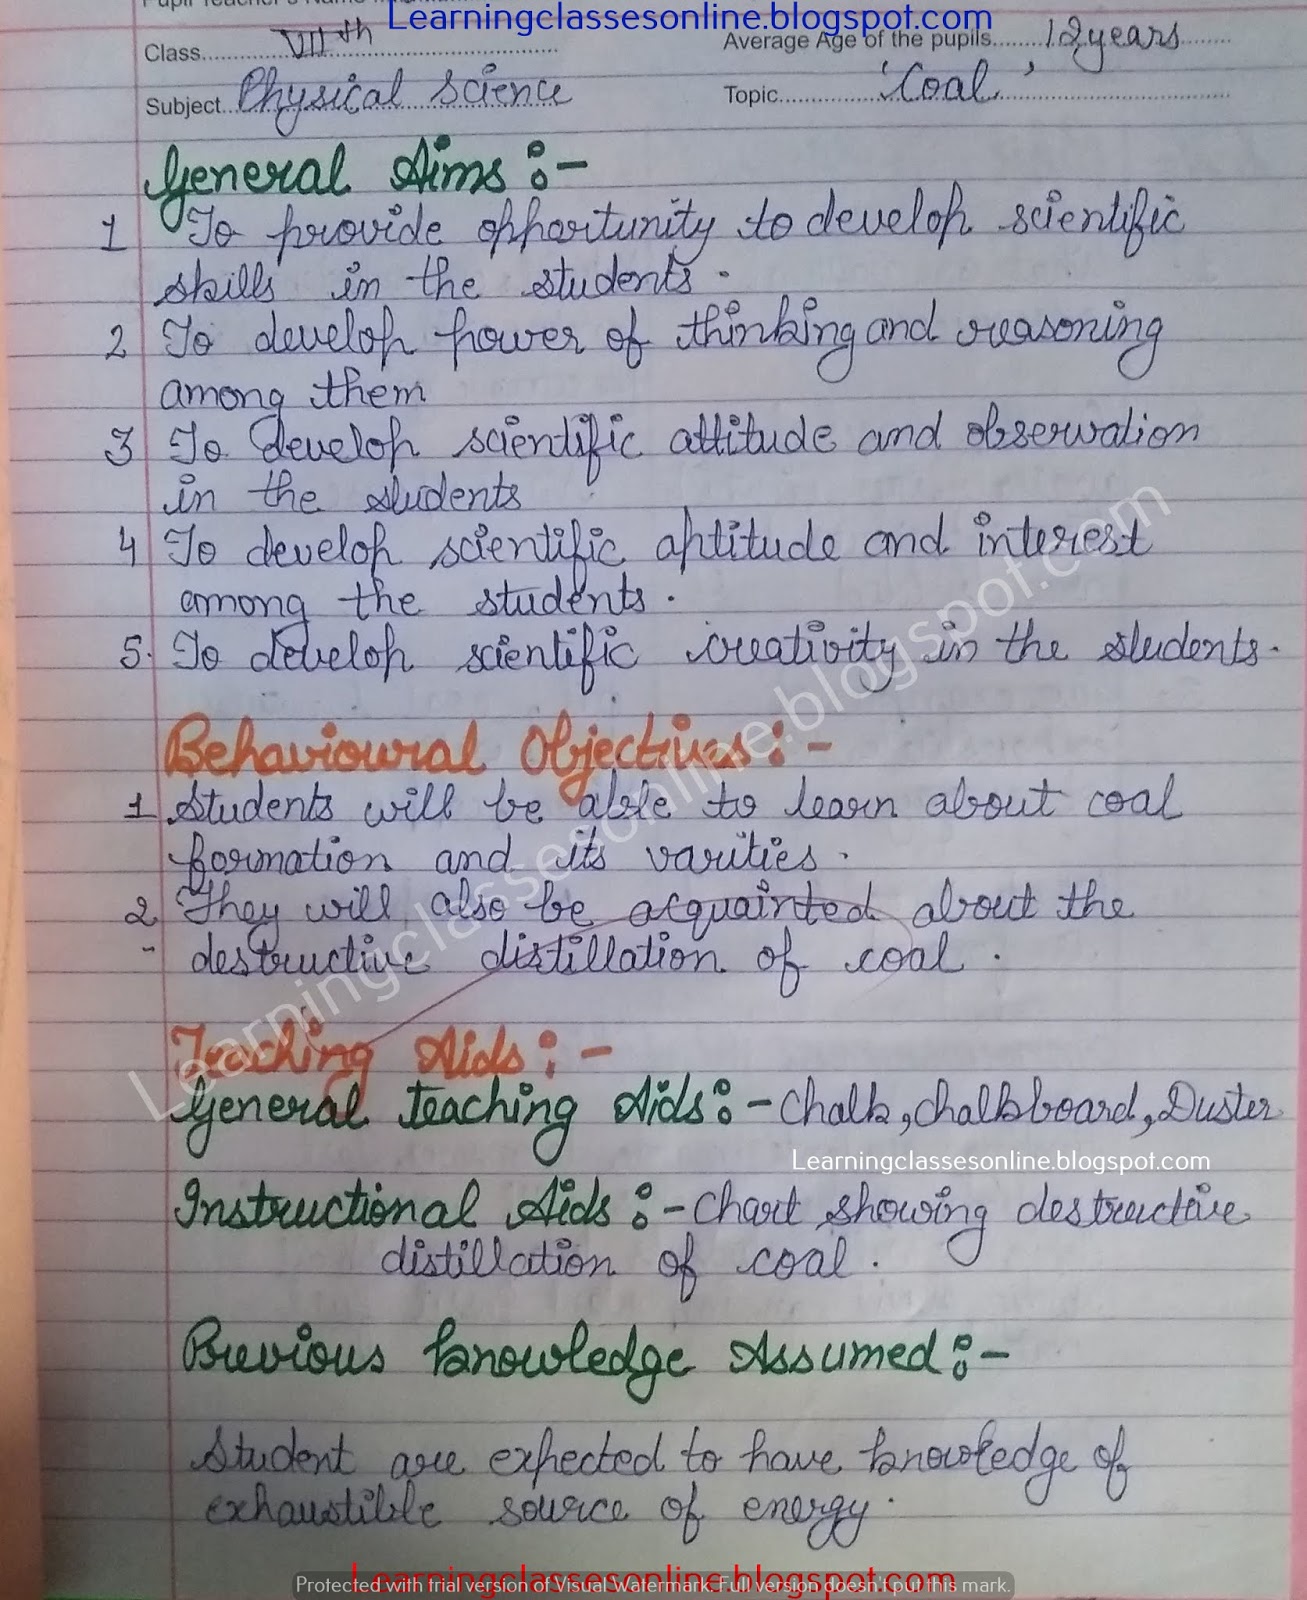 Pupil Teacher's Name
Learningclassesonline.blogspot.com
Class VIIth Average Age of the pupils 12 years
Subject Physical Science Topic 'Coal'
General Aims :-
1 To provide opportunity to develop scientific
skills in the students.
2 To develop power of thinking and reasoning
among them
3 To develop scientific attitude and observation
in the students
4 To develop scientific aptitude and interest
among the students.
5. To develop scientific creativity in the students.
Behavioural Objectives :-
1 Students will be able to learn about coal
formation and its varities.
2 They will also be acquainted about the
- destructive distillation of coal.
Learningclassesonline.blogspot.com
Teaching Aids :-
General Teaching Aids :- Chalk, Chalkboard, Duster
Learningclassesonline.blogspot.com
Instructional Aids :- Chart showing destructive
distillation of coal.
Previous knowledge Assumed :-
Student are expected to have knowledge of
exhaustible source of energy.
Learningclassesonline.blogspot.com
Protected with trial version of Visual Watermark. Full version doesn't put this mark.